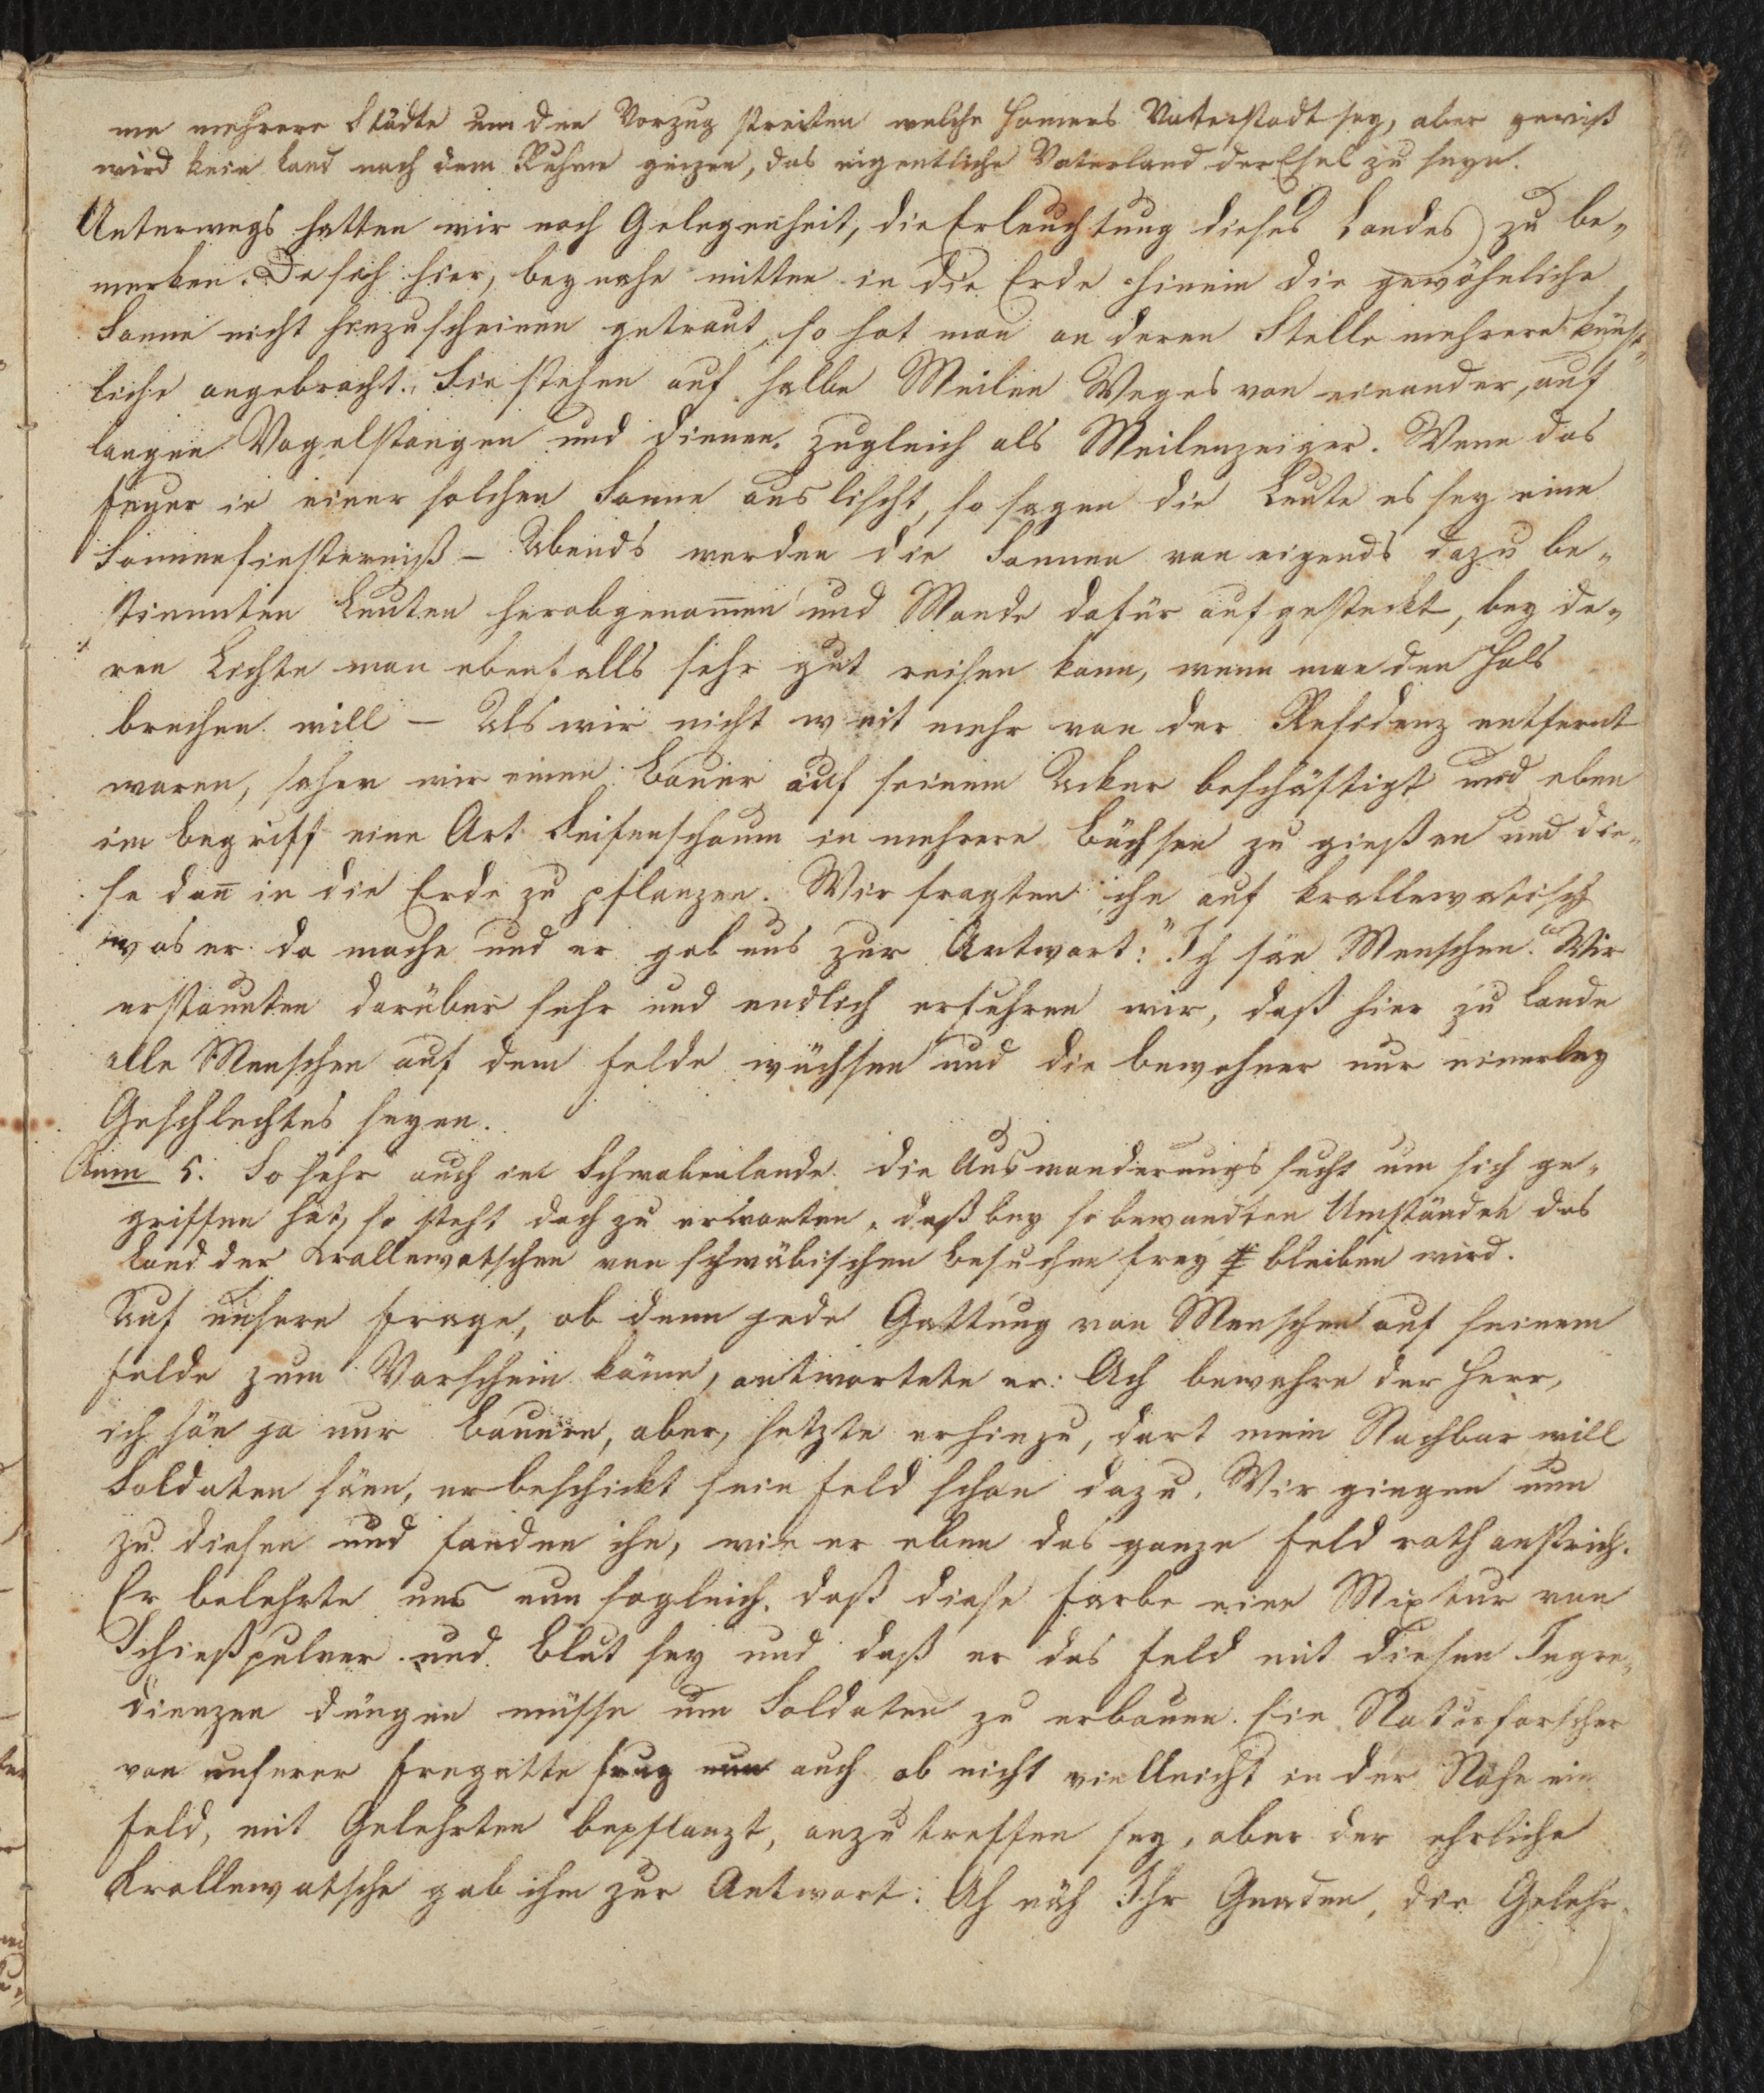 me mehrere Städte um den Vorzug streiten welche Homers Vaterstadt sey, aber gewiß
wird kein Land nach dem Ruhme geizen, das eigentliche Vaterland der Esel zu seyn.
Unterwegs hatten wir noch Gelegenheit, die Erleuchtung dieses Landes zu be-
merken. Da sich hier, beynahe mitten in die Erde hinein die gewöhnliche
Sonne nicht hinzuscheinen getraut, so hat man an deren Stelle mehrere künst-
liche angebracht. Sie stehen auf halbe Meilen Weges von einander, auf
langen Vogelstangen und dienen zugleich als Meilenzeiger. Wenn das
Feuer in einer solchen Sonne auslischt, so sagen die Leute es sey eine
Sonnenfinsterniß – Abends werden die Sonnen von eigends dazu be-
stimmten Leuten herabgenom̅en und Monde dafür aufgesteckt, bey de-
ren Lichte man ebenfalls sehr gut reisen kann, wenn man den Hals
brechen will – Als wir nicht weit mehr von der Residenz entfernt
waren, sahen wir einen Bauer auf seinem Acker beschäftigt und eben
im Begriff eine Art Seifenschaum in mehrere Büchsen zu gießen und die-
se dan̅ in die Erde zu pflanzen. Wir fragten ihn auf krallewatisch
was er da mache und er gab uns zur Antwort: "Ich säe Menschen." Wir
erstaunten darüber sehr und endlich erfuhren wir, daß hier zu Lande
alle Menschen auf dem Felde wüchsen und die Bewohner nur einerley
Geschlechtes seyen.
Anm 5. So sehr auch im Schwabenlande die Auswanderungssucht um sich ge-
griffen hat, so steht doch zu erwarten, daß bey so bewandten Umständen das
Land der Krallewatschen von schwäbischen Besuchen frey bleiben wird.
Auf unsere Frage, ob denn jede Gattung von Menschen auf seinem
Felde zum Vorschein käme, antwortete er: Ach bewahre der Herr,
ich säe ja nur Bauern, aber, setzte er hinzu, dort mein Nachbar will
Soldaten säen, er beschickt sein Feld schon dazu. Wir giengen nun
zu diesen und fanden ihn, wie er eben das ganze Feld roth anstrich.
Er belehrte uns nun sogleich, daß diese Farbe eine Mixtur von
Schießpulver und Blut sey und daß er das Feld mit diesen Ingre-
dienzen düngen müsse um Soldaten zu erbauen. Ein Naturforscher
von unserer Fregatte frug nun auch ob nicht vielleicht in der Nähe ein
Feld, mit Gelehrten bepflanzt, anzutreffen sey, aber der ehrliche
Krallewatsche gab ihm zur Antwort: Ah näh Ihr Gnaden, die Gelehr-